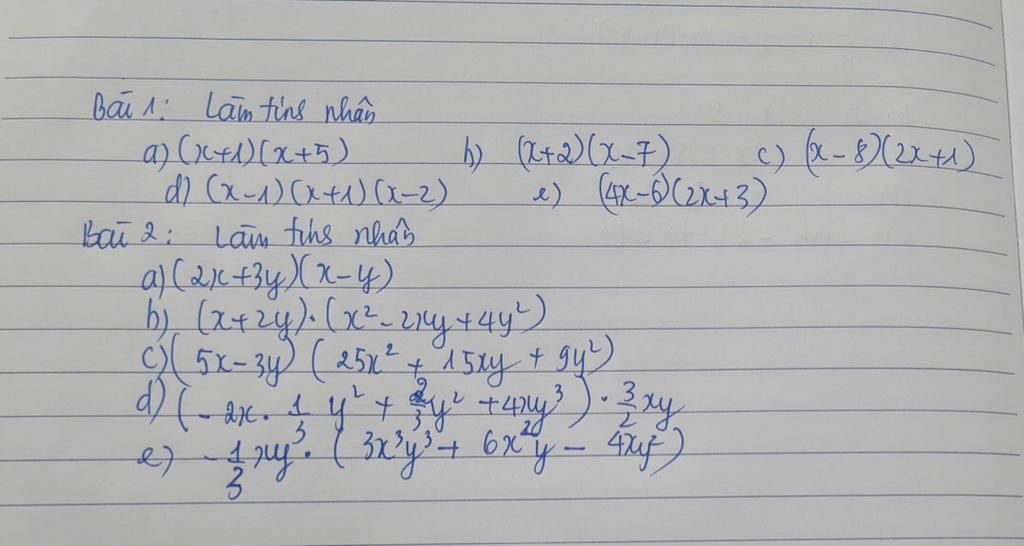 Bài 1: Làm tính nhân
a) (x+1)(x+5) b) (x+2)(x-7) c) (x-8)(2x+1)
d) (x-1)(x+1)(x-2) e) (4x-6)(2x+3)
Bài 2: Làm tính nhân
a) (2x+3y)(x-y)
b) (x+2y)·(x²-2xy+4y²)
c) (5x-3y)(25x²+15xy+9y²)
d) (-2x·1/3 y²+2/3 y²+4xy³)·3/2 xy
e) -1/3 xy³·(3x³y³+6x²y-4xy²)